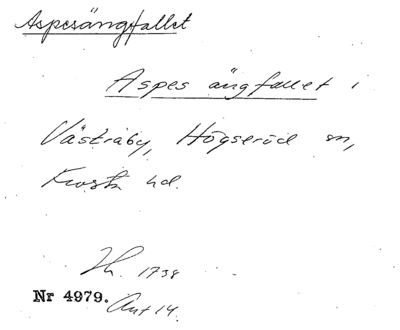 Aspesängfallet
Aspes ängfallet i
Västraby, Högseröd sn,
Frosta hd.
Lh. 1738
Nr 4979. Ant 14.